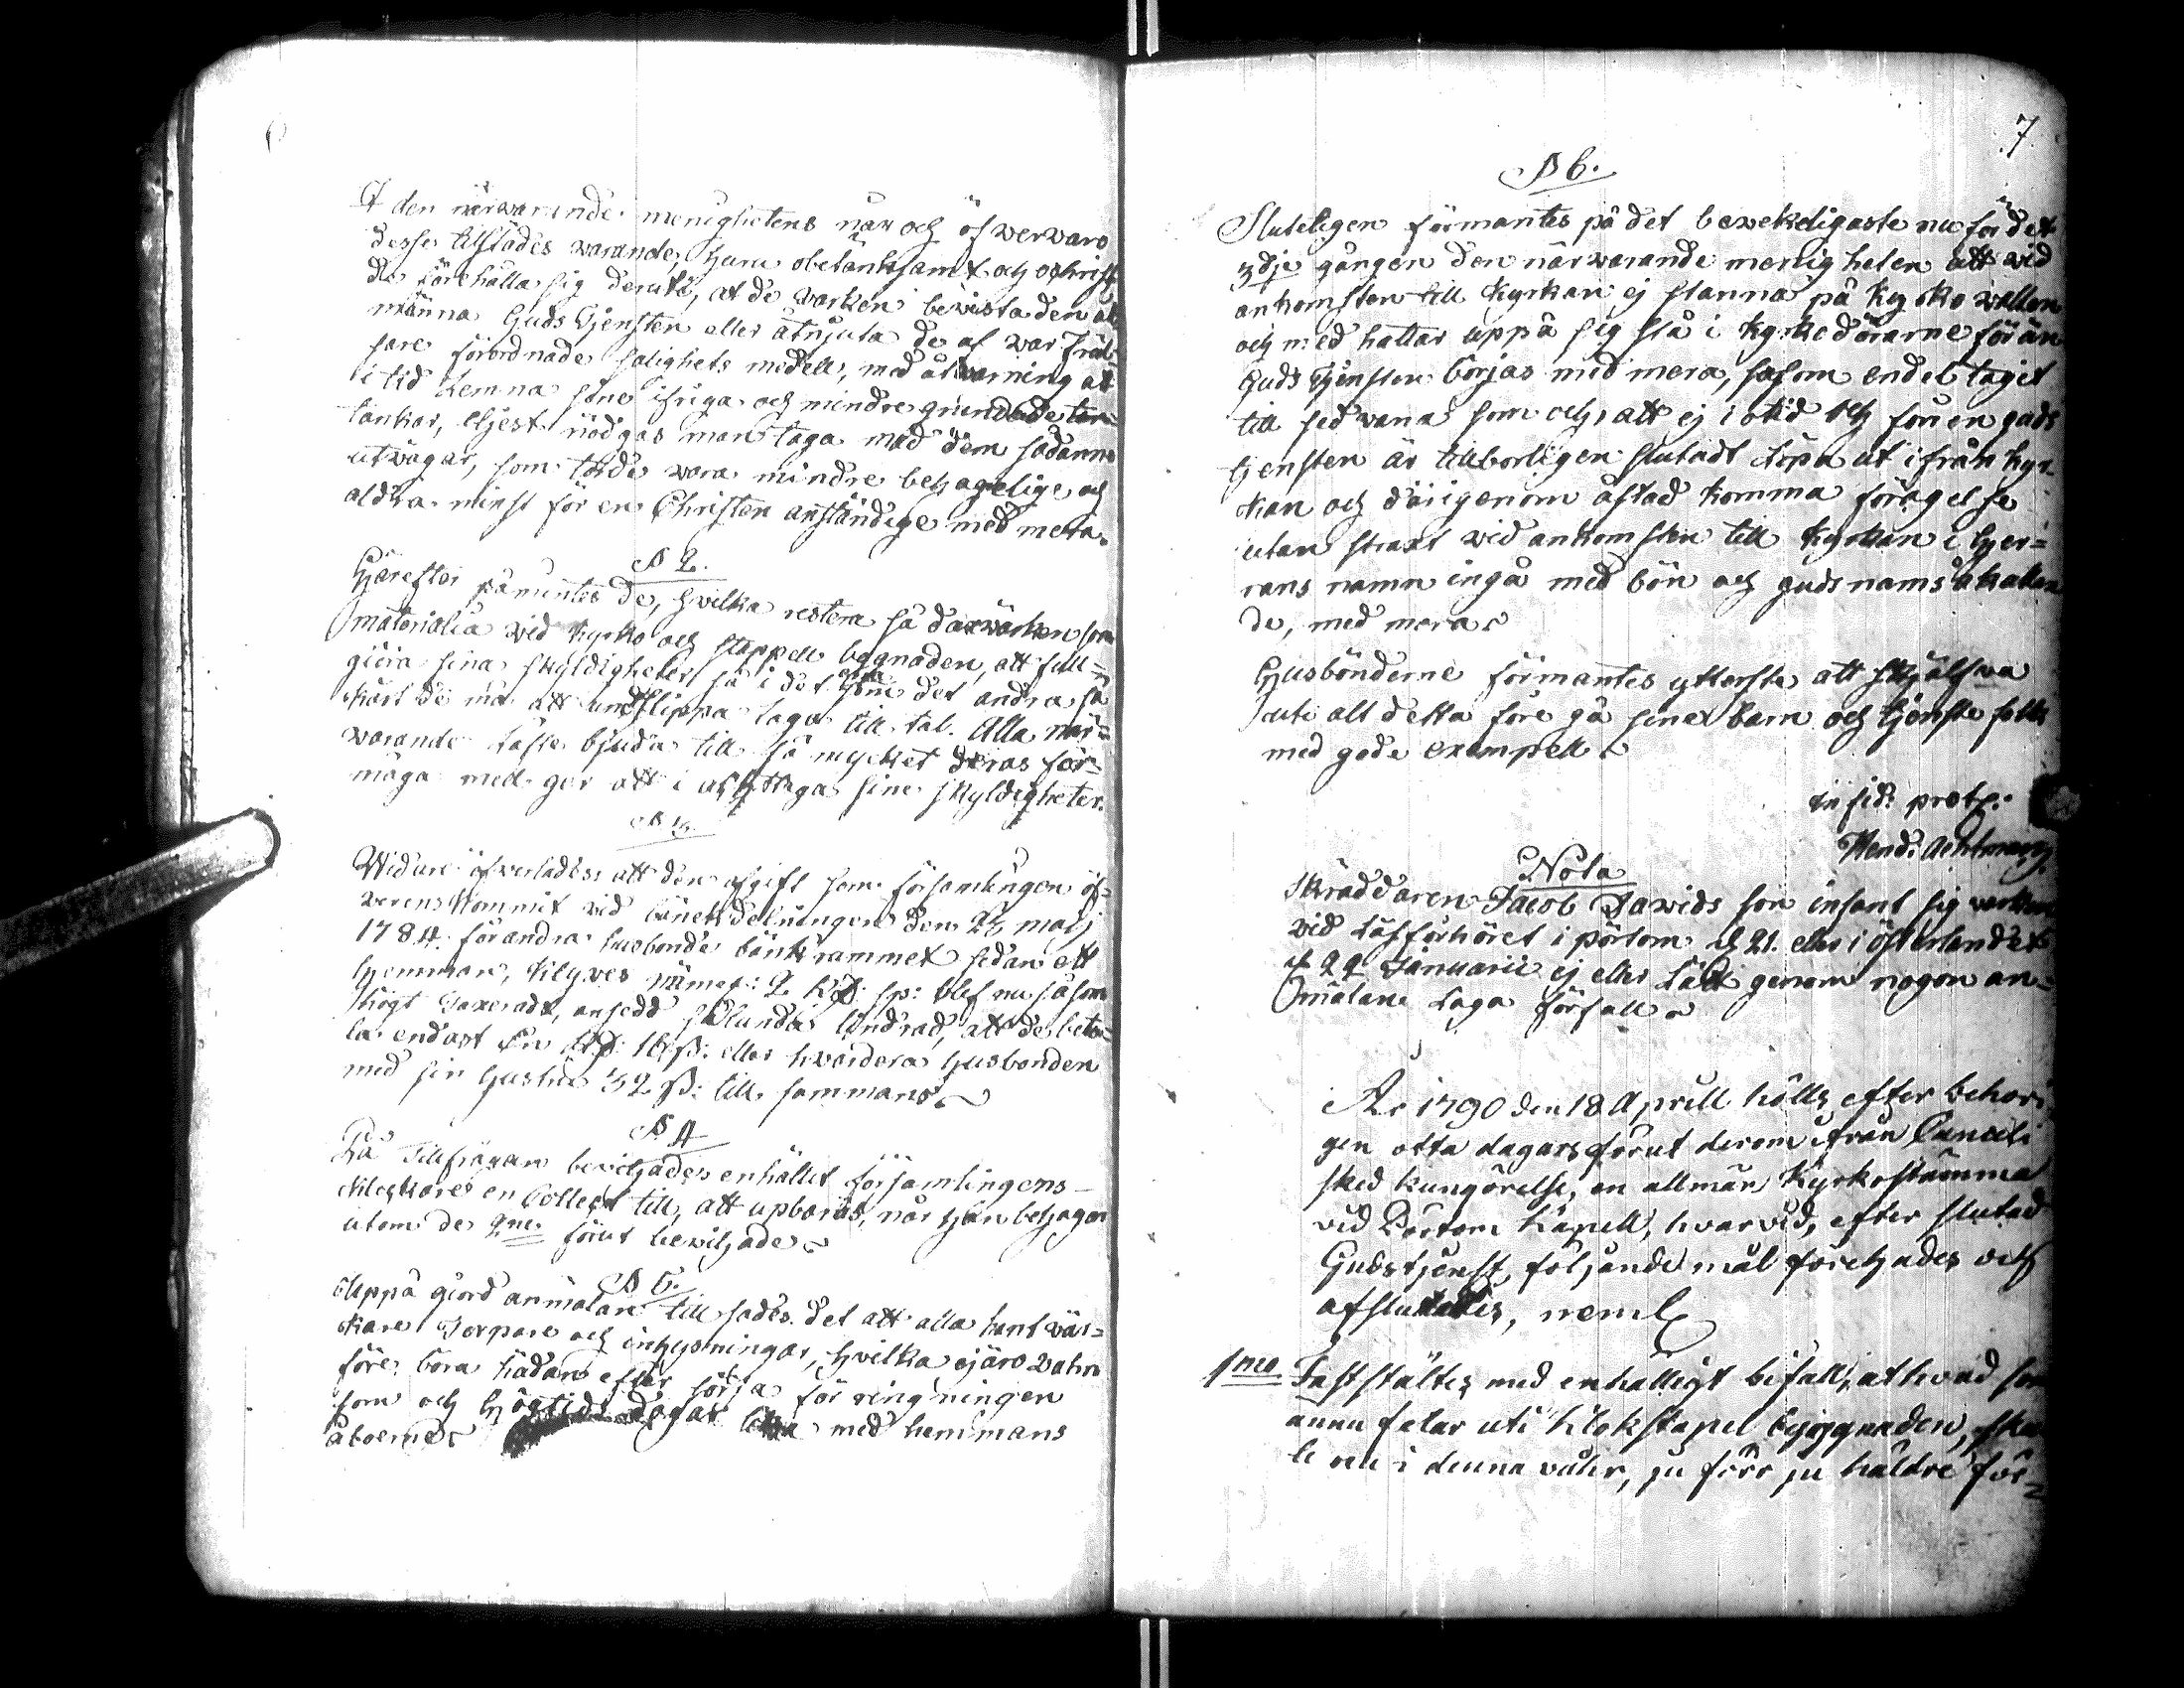 den närwarande menighetens när och öfwerwaro
desse tillstädes warande, huru obetänksamt och
de förehålla sig derute, at de warken bewista den al
männa Guds Tjensten eller åtnjuta de af war Fräl-
sare förordnade salighets medell, med åtwarning at
i tid lemna sine ifriga och mindre grundade tan-
tankar, eljest nödgas man taga med dem sådanne
utwägar, som torde wara mindre behagelige och
aldra minst för en Christen anständige med mera.
§ 2.
Härefter påmintes de, hvilka restera så dagwärken som
materialia wid Kyrko och stappell bygnaden, att full-
giöra sina skyldigheter så i det ena som det andra så
kärt de må att undslippa laga till tal. Alla när-
warande låfte bjuda till så mycket deras för-
måga med ger att i  sine skyldigheter.
§ 3.
Widare öfverlades att den afgift som församlingen öf-
werens kommit vid bänkdelningen den 26 maij
1784. för andra husbonde bänkrummet sedan ett
hemman, kilyves nämel: 2 Rd: sp: blef nu såsom
högt Taxeradt, ansedd sålunda lindrad, att de beta-
la endast En Rd: 16 ß: eller hwardera husbonden
med sin hustru 32 ß: till sammans
§ 4
På Tillfrågan bewiljades enhällit församlingens
klockare en Collect till, att upbäras, när han behagar
utom de 2ne förut bewiljade
§ 5.
Uppå giord anmälan till sades det att alla hant vär-
kare Torpare och inhysningar, hvilka ej äro
före böra hädan efter sörja för ringningen
som och Högtids dagar lika med hemmans
åboerne

7
§ 6.
Sluteligen förmantes på det bewekeligaste nu för det
3dje gången den närwarande menigheten att wid
ankomsten till Kyrkan ej stanna på Kyrko wallen
och med hattar uppå sig stå i Kyrkodörarne förän
Guds Tjensten börjas med mera, såsom endel taget
till sed wana som och, att ej i otid och förr en guds
tjensten är tillbörligen slutadt löpa ut ifrån Kyr-
kan och därigenom åstad komma förargelse
utan straxt wid ankomsten till Kyrkan i Her-
rans namn ingå med bön och guds namns åkallan
de, med mera
Husbönderne förmantes ytterst att sjelfwa
uti alt detta före gå sina barn och tjenste folk
med gode exempell
in fid: prot:
Hend:
Nota
Skräddaren Jacob Dawids son infant sig varken
vid Läsförhöret i pörtom d 21. eller i österlandet
d 22 Januarii ej eller Lätt genom nogon an-
mälan Laga förfall
År 1790 den 18 Aprill hölls efter behöri
gen otta dagars förut derom ifrån Cancell
sked kungörelse, en allmän Kyrkostämma
vid Pörtom Kapell, hvarvid, efter slutad
Gudstjenst, följande mål företogades och
afslutades, neml
1mo. Fastställtes med enhälligt bifall, at hvad som
ännu felar uti klokstapel byggnaden, skul
le nu i denna våhr, ju förr ju hälldre för-